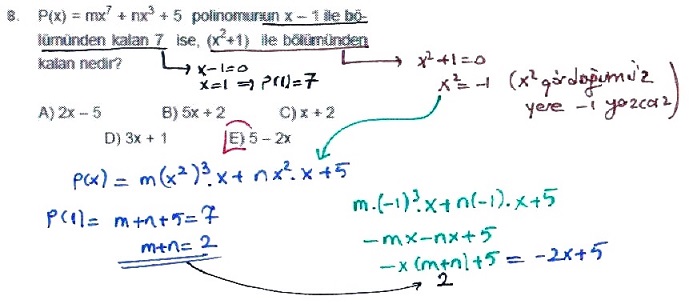 8. P(x) = mx⁷ + nx³ + 5 polinomunun x – 1 ile bö-
lümünden kalan 7 ise, (x²+1) ile bölümünden
kalan nedir?
x-1=0
x=1 ⇒ P(1)=7
x²+1=0
x²=-1 (x² gördüğümüz
yere -1 yazcaz)
A) 2x – 5 B) 5x + 2 C) x + 2
D) 3x + 1 E) 5 – 2x
P(x) = m(x²)³.x + nx².x+5
P(1)= m+n+5=7
m+n=2
m.(-1)³.x+n(-1).x+5
-mx-nx+5
-x(m+n)+5 = -2x+5
2